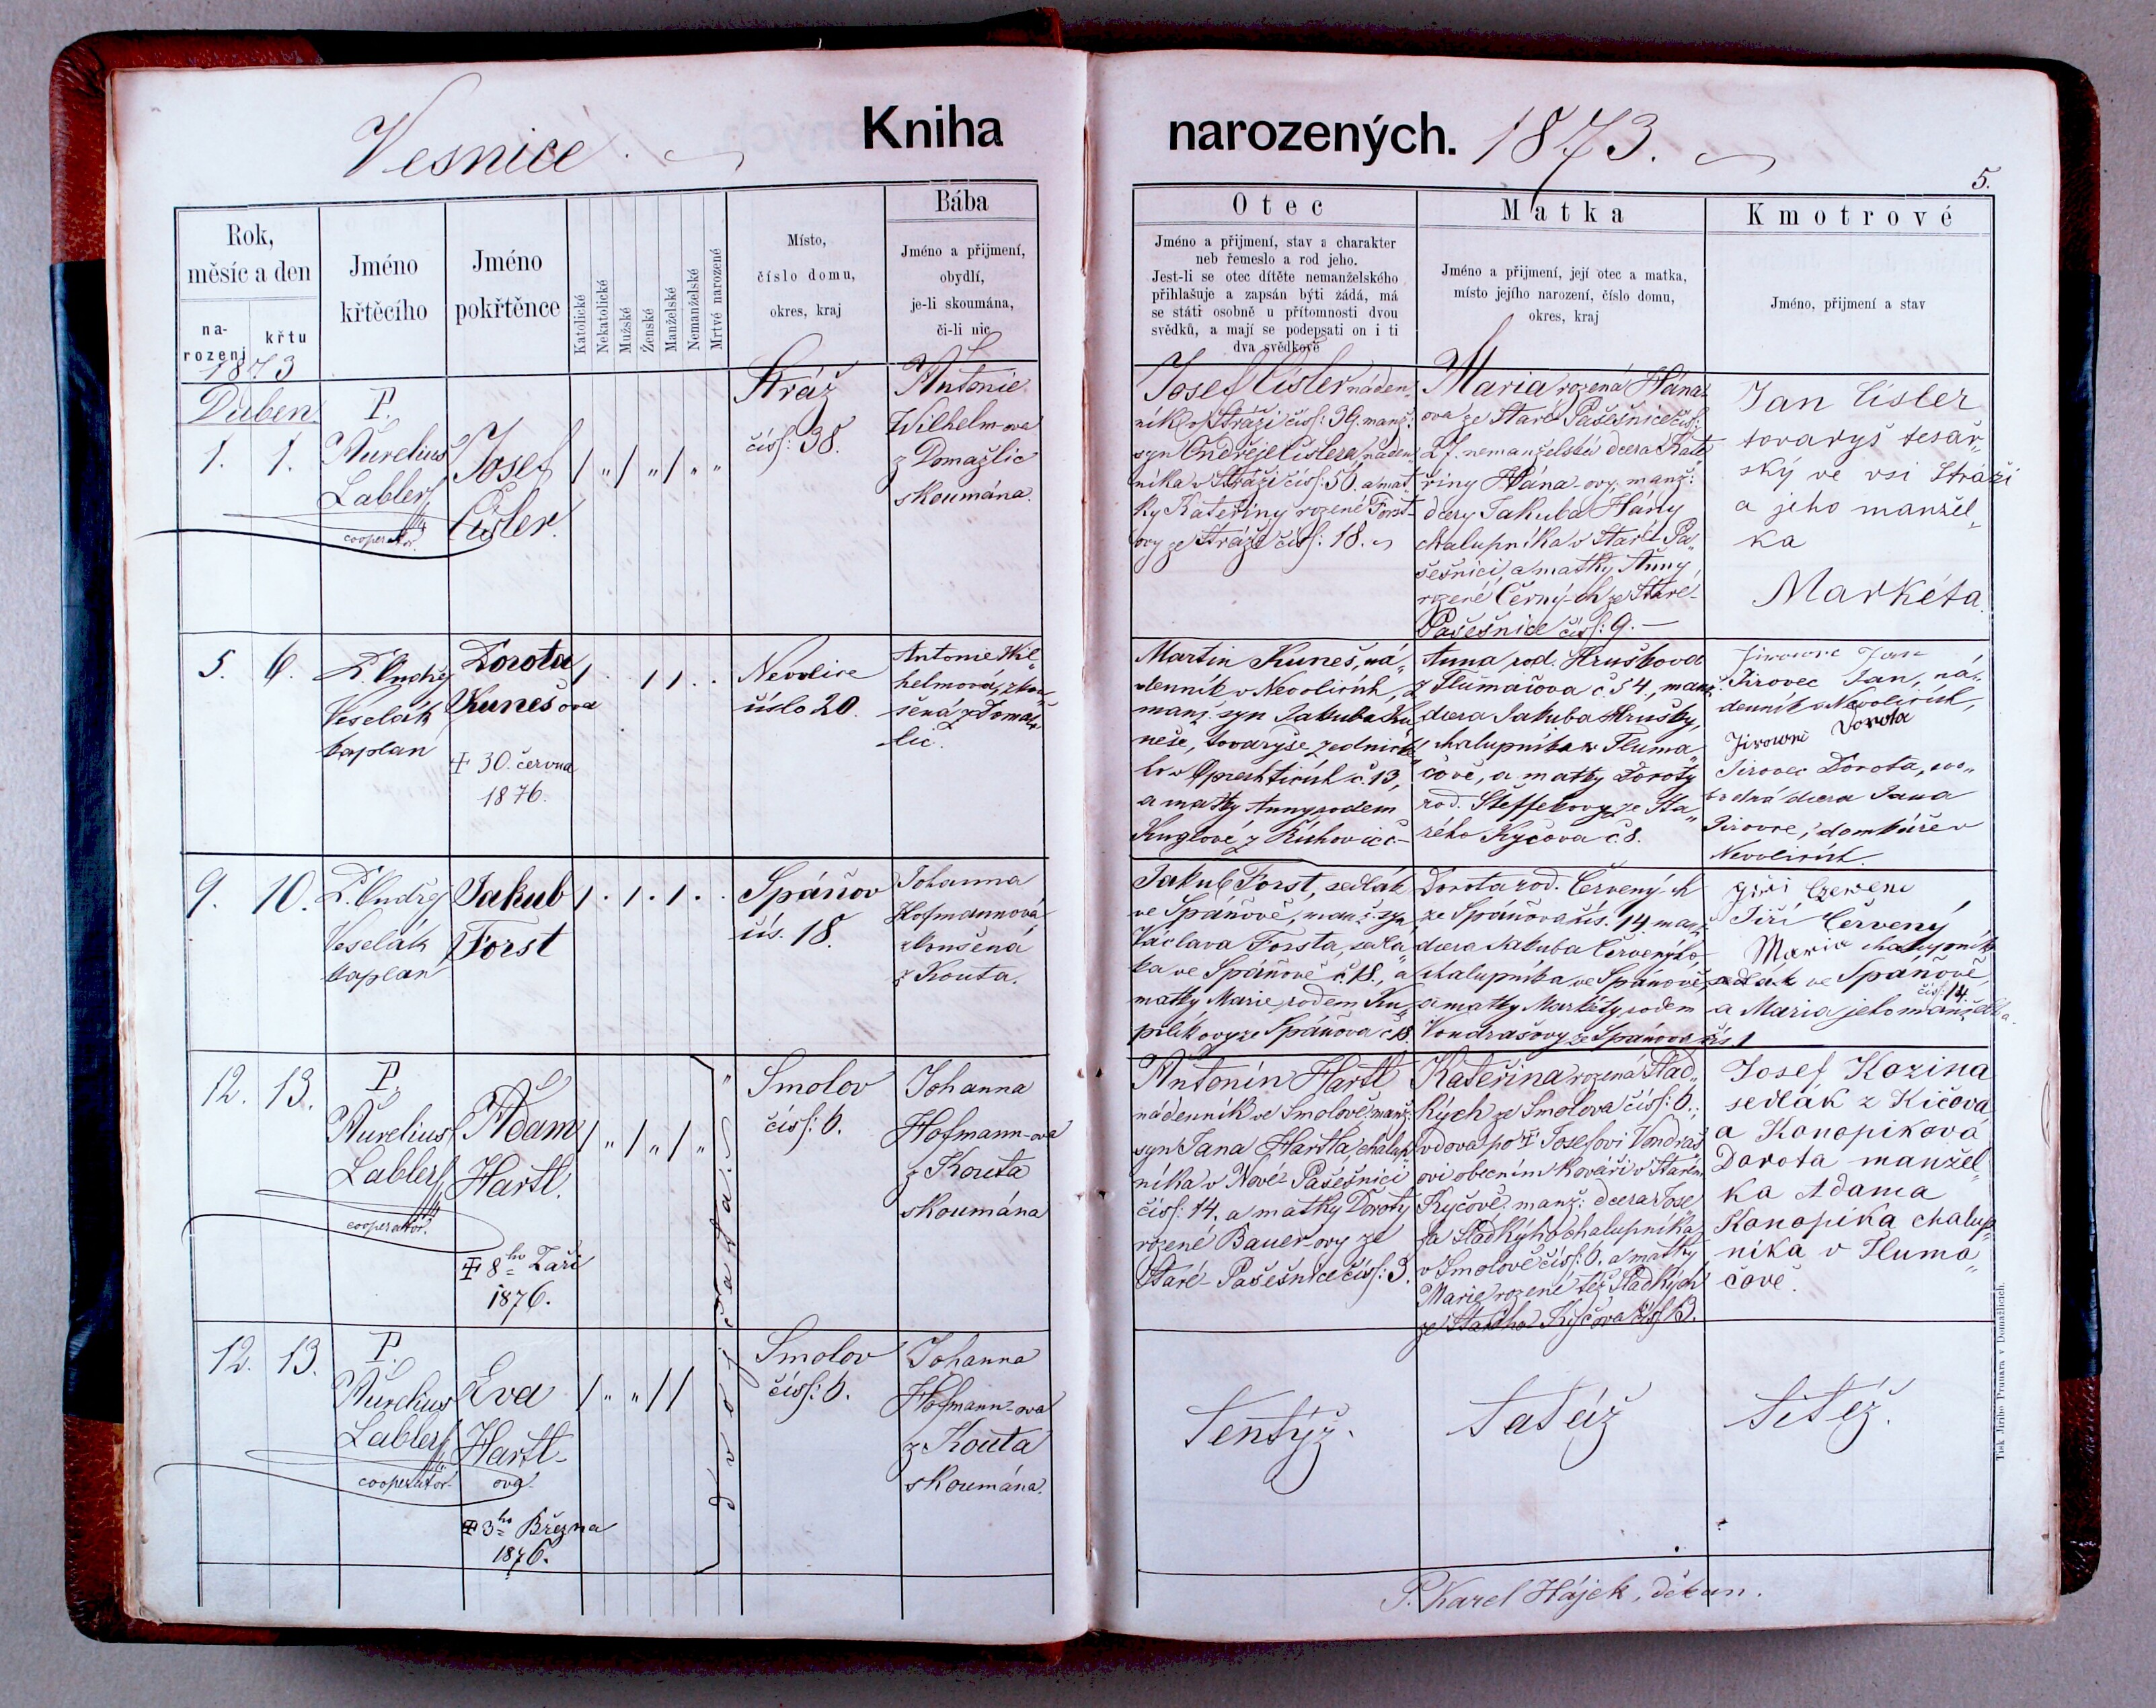 Vesnice.
Kniha
narozených. 1873.
5.
Rok,
měsíc a den
na-
rození
křtu
Jméno
křtěcího
Jméno
pokřtěnce
Katolické
Nekatolické
Mužské
Ženské
Manželské
Nemanželské
Mrtvě narozené
Místo,
číslo domu,
okres, kraj
Bába
Jméno a přijmení,
obydlí,
je-li skoumána,
či-li nic
Otec
Jméno a přijmení, stav a charakter
neb řemeslo a rod jeho.
Jest-li se otec dítěte nemanželského
přihlašuje a zapsán býti žádá, má
se státi osobně u přítomnosti dvou
svědků, a mají se podepsati on i ti
dva svědkově
Matka
Jméno a přijmení, její otec a matka,
místo jejího narození, číslo domu,
okres, kraj
Kmotrové
Jméno, přijmení a stav
1873
Duben
1. 1.
P.
Aurelius
Labler
cooperator.
Josef
Čisler.
/ " / " / " "
Stráž
čísl: 38.
Antonie
Wilhelm-ova
z Domažlic
skoumána.
Josef Čisler náden„
ník v Stráži čísl: 39. manž:
syn Ondřeje Čislera náden„
níka v Stráži čísl: 56. a mat„
ky Kateřiny rozené Forst-
ovy ze Stráže čísl: 18.
Maria rozená Hána-
ova ze Staré Pašešnice čísl:
27. nemanželská dcera Kate„
řiny Hána-ovy, manž:
dcery Jakuba Hány
chalupníka v Staré Pa„
šešnici, a matky Anny,
rozené Černý-ch ze Staré-
Pašešnice čísl: 9. —
Jan Čisler
tovaryš tesař„
ský ve vsi Stráži
a jeho manžel„
ka
Markéta.
5. 6.
P. Ondřej
Veselák
kaplan
Dorota
Kunešova
✝ 30. června
1876.
Nevolice
číslo 20.
Antonie Wil„
helmová, zkou„
šená z Domaž„
lic.
Martin Kuneš, ná„
denník v Nevolicích,
manž. syn Jakuba Ku„
neše, tovaryše zednické„
ho v Oprechticích č. 13,
a matky Anny rodem
Kuglové z Říchovic č. –
Anna, rod. Hruškova
z Tlumačova č. 54, manž.
dcera Jakuba Hrušky,
chalupníka v Tluma„
čově, a matky Doroty
rod. Steffekovy ze Sta„
rého Kyčova č. 8.
Jirowec Jan
Jirovec Jan, ná„
denník v Nevolicích,
Jirowec Dorota
Jirovec Dorota, svo„
bodná dcera Jana
Jirovce, domkáře v
Nevolicích.
9. 10.
P. Ondřej
Veselák
kaplan
Jakub
Forst
Spáňov
čís. 18.
Johanna
Hofmannová,
zkoušená
z Kouta.
Jakub Forst, sedlák
ve Spáňově, manž. syn
Václava Forsta, sedlá„
ka ve Spáňově č. 18., a
matky Marie, rodem Ku„
pilíkovy ze Spáňova č. 18.
Dorota rod. Červený-ch
ze Spáňova čís. 14, manž.
dcera Jakuba Červenýho,
chalupníka ve Spáňově,
a matky Markéty, rodem
Vondrašovy ze Spáňova čís. 1
Jiři Czerveni
Jiří Červený
Marie chalupník
sedlák ve Spáňově,
čísl: 14.
a Maria jeho manželka.
12. 13.
P.
Aurelius
Labler
cooperator.
Adam
Hartl.
✝ 8ho Září
1876.
/ " / " / "
dvojčata.
Smolov
čísl: 6.
Johanna
Hofmann-ova
z Kouta
skoumána
Antonín Hartl
nádenník ve Smolově, manž:
syn Jana Hartla, chalup„
níka v Nové- Pašešnici
čísl: 14. a matky Doroty
rozené Bauer-ovy ze
Staré- Pašešnice čísl: 3.
Kateřina rozená Slad„
kých ze Smolova čísl: 6.,
vdova po ✝ Josefovi Vondraš„
ovi obecním kováři v Starém
Kyčově, manž: dcera Jose„
fa Sladkýho chalupníka
v Smolově čísl: 6. a matky
Marie rozené též Sladkých
ze Starého Kyčova čísl: 3.
Josef Kozina
sedlák z Kičova
a Konopiková
Dorota manžel„
ka Adama
Konopíka chalup„
níka v Tluma„
čově.
12. 13.
P.
Aurelius
Labler
cooperator.
Eva
Hartl-
ova.
✝ 3ho Března
1876.
/ " " / /
Smolov
čísl: 6.
Johanna
Hofmann-ova
z Kouta
skoumána.
Tentýž.
Tatáž
Titéž.
P. Karel Hájek, děkan.
Tisk Jiřího Prunara v Domažlicích.